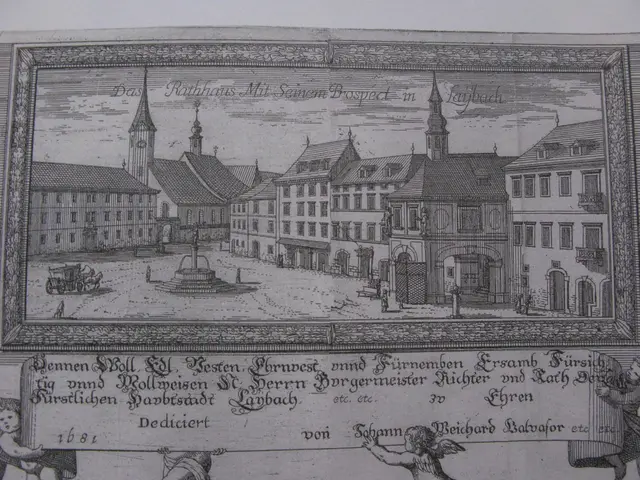 Das Rathhaus Mit Seinem Prospect in Laybach
Dennen Woll Edl. Vesten. Ehrnvest. vnnd Fürnemben Ersamb Fürsich
tig vnnd Wollweisen N. Herrn Burgermeister Richter vnd Rath Der
Fürstlichen Haubtstadt Laybach. etc. etc. zv Ehren
Dediciert
1681 von Johann Weichard Valvasor etc etc